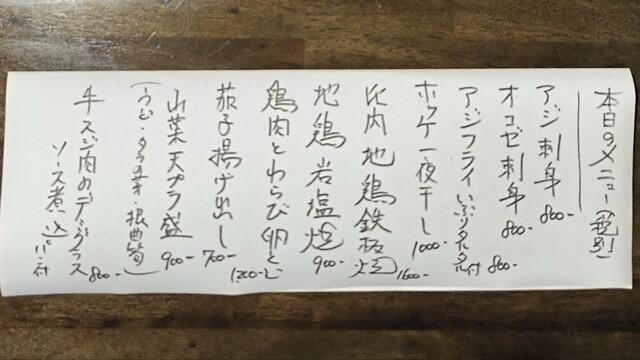 本日のメニュー(税別)
アジ刺身 800-
オコゼ刺身 800-
アジフライ いぶりタルタル付 800-
ホッケ一夜干し 1000-
比内地鶏鉄板焼 1600-
地鶏岩塩焼 900-
鶏肉とわらび卵とじ 1200-
茄子揚げ出し 700-
山菜天プラ盛 900-
(うど・タラの芽・根曲筍)
牛スジ肉のデミグラス
ソース煮込 パン付 800-